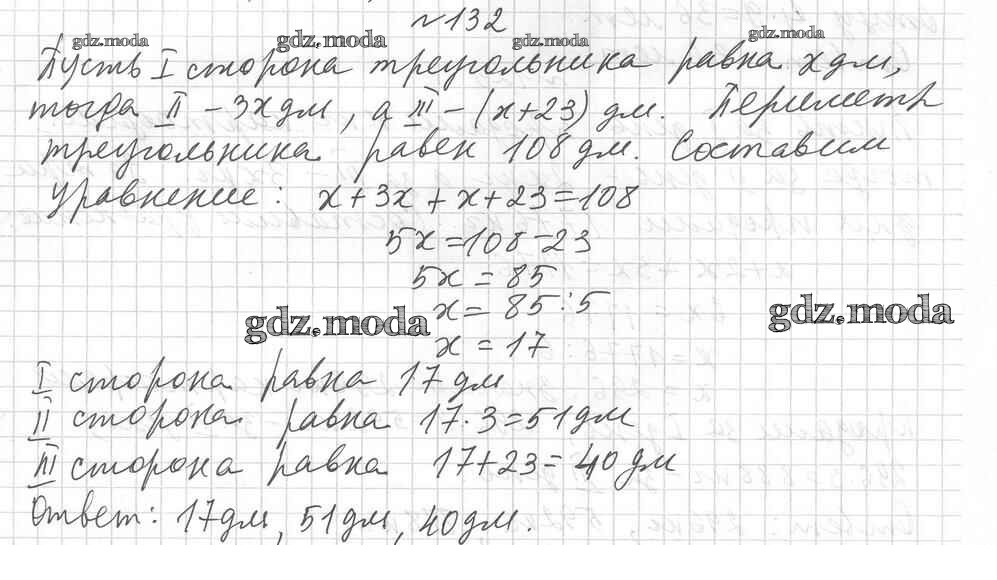 №132
gdz.moda gdz.moda gdz.moda gdz.moda
Пусть I сторона треугольника равна x дм,
тогда II – 3x дм, а III – (x+23) дм. Периметр
треугольника равен 108 дм. Составим
уравнение: x+3x+x+23=108
5x=108-23
5x=85
x=85:5
gdz.moda gdz.moda
x=17
I сторона равна 17 дм
II сторона равна 17·3=51 дм
III сторона равна 17+23=40 дм
Ответ: 17 дм, 51 дм, 40 дм.